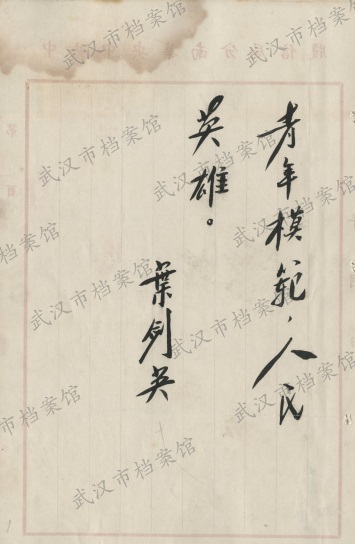 青年模範，人民
英雄。
葉劍英
武汉市档案馆
武汉市档案馆
武汉市档案馆
武汉市档案馆
武汉市档案馆
武汉市档案馆
武汉市档案馆
武汉市档案馆